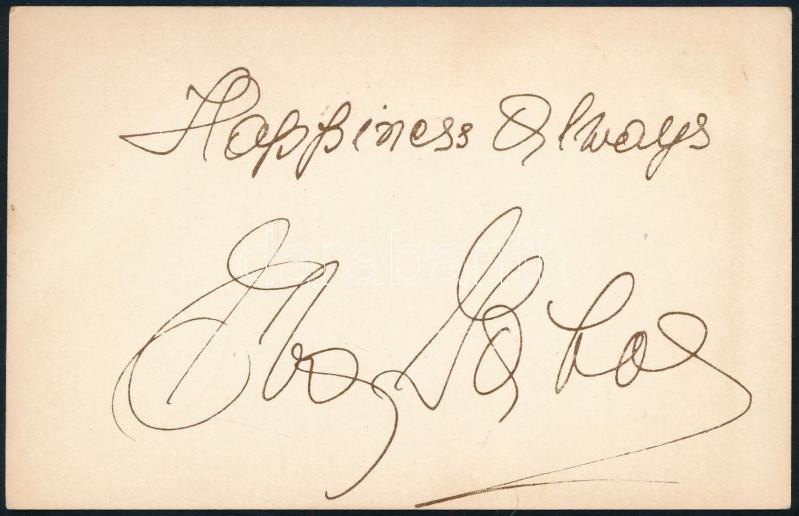 Happiness Always
Eva Gabor
darabanth